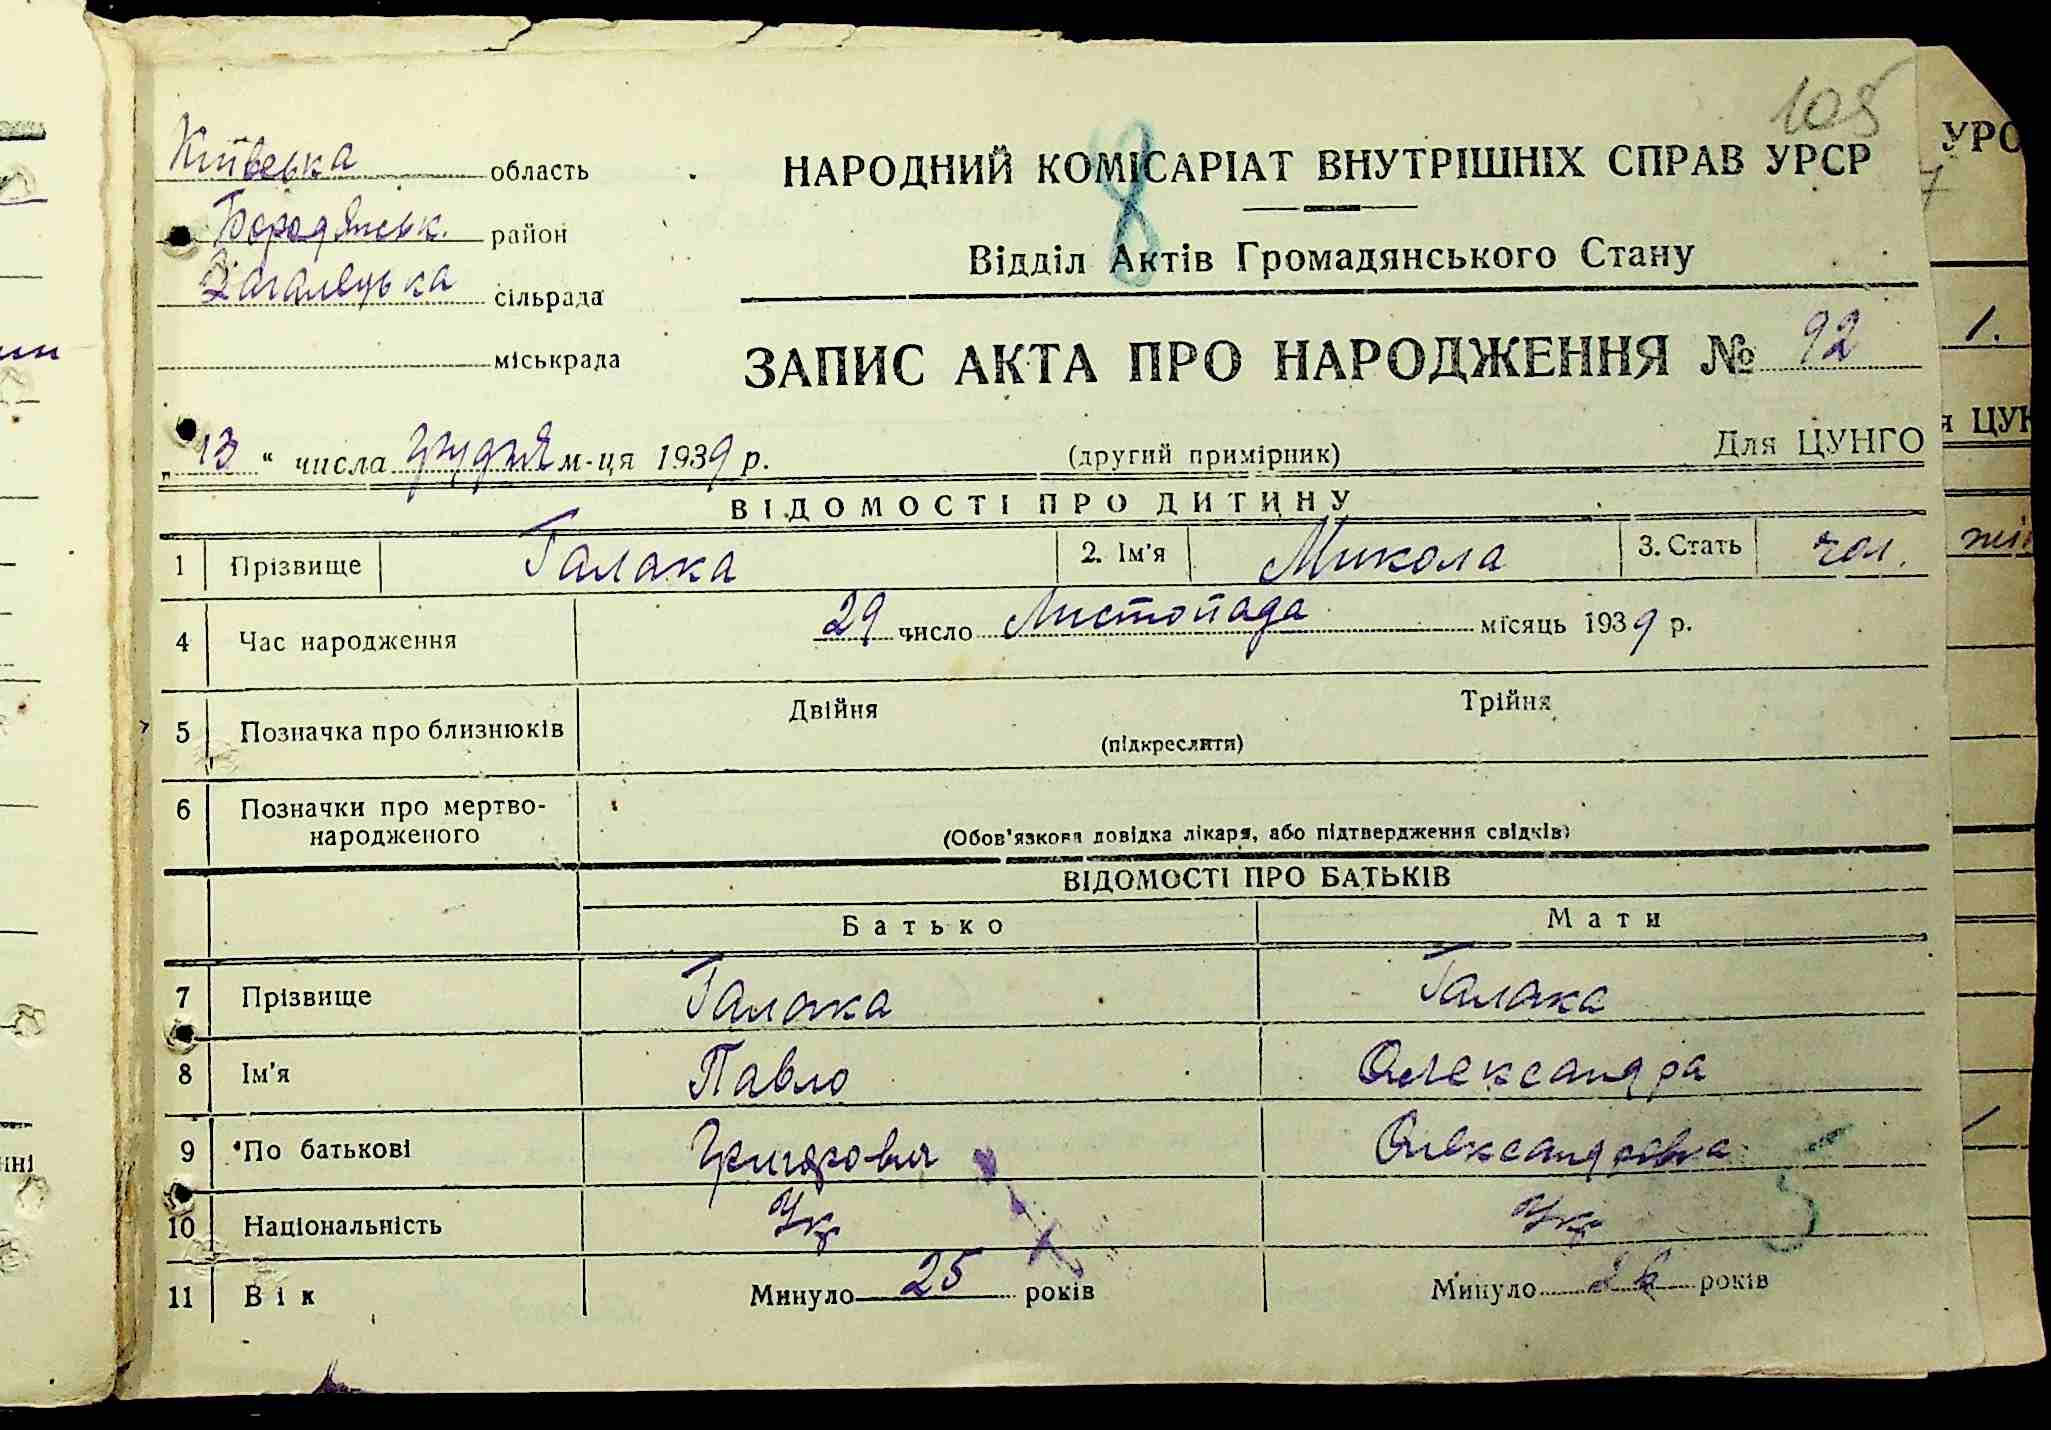 105
Київська область
Бородянськ. район
Загалецька сільрада
міськрада
НАРОДНИЙ КОМІСАРІАТ ВНУТРІШНІХ СПРАВ УРСР
8
Відділ Актів Громадянського Стану
ЗАПИС АКТА ПРО НАРОДЖЕННЯ № 92
„13“ числа грудня м-ця 1939 р. (другий примірник) Для ЦУНГО
ВІДОМОСТІ ПРО ДИТИНУ
1 Прізвище Галака 2. Ім'я Микола 3. Стать чол.
4 Час народження 29 число Листопада місяць 1939 р.
5 Позначка про близнюків Двійня Трійня
(підкреслити)
6 Позначки про мертво-
народженого
(Обов'язкова довідка лікаря, або підтвердження свідків)
ВІДОМОСТІ ПРО БАТЬКІВ
Батько Мати
7 Прізвище Галака Галака
8 Ім'я Павло Олександра
9 По батькові Григорович Олександровна
10 Національність Ук Ук
11 Вік Минуло 25 років Минуло років